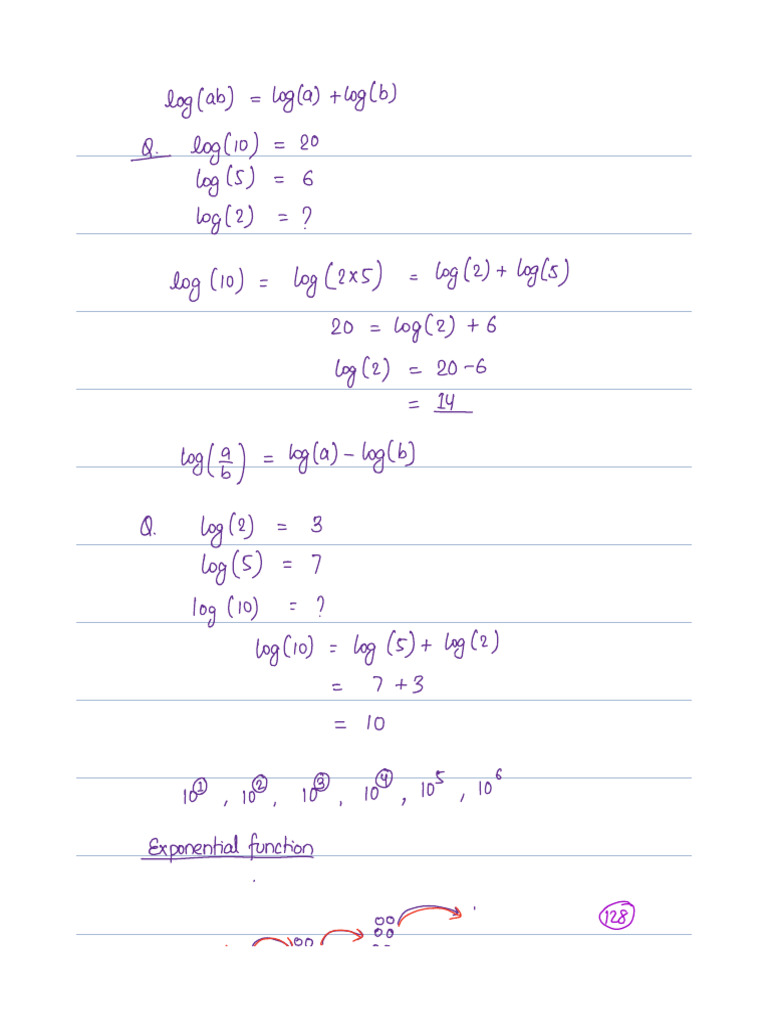 log(ab) = log(a) + log(b)
Q. log(10) = 20
log(5) = 6
log(2) = ?
log(10) = log(2×5) = log(2) + log(5)
20 = log(2) + 6
log(2) = 20 - 6
= 14
log(a/b) = log(a) - log(b)
Q. log(2) = 3
log(5) = 7
log(10) = ?
log(10) = log(5) + log(2)
= 7 + 3
= 10
10¹, 10², 10³, 10⁴, 10⁵, 10⁶
Exponential function
128